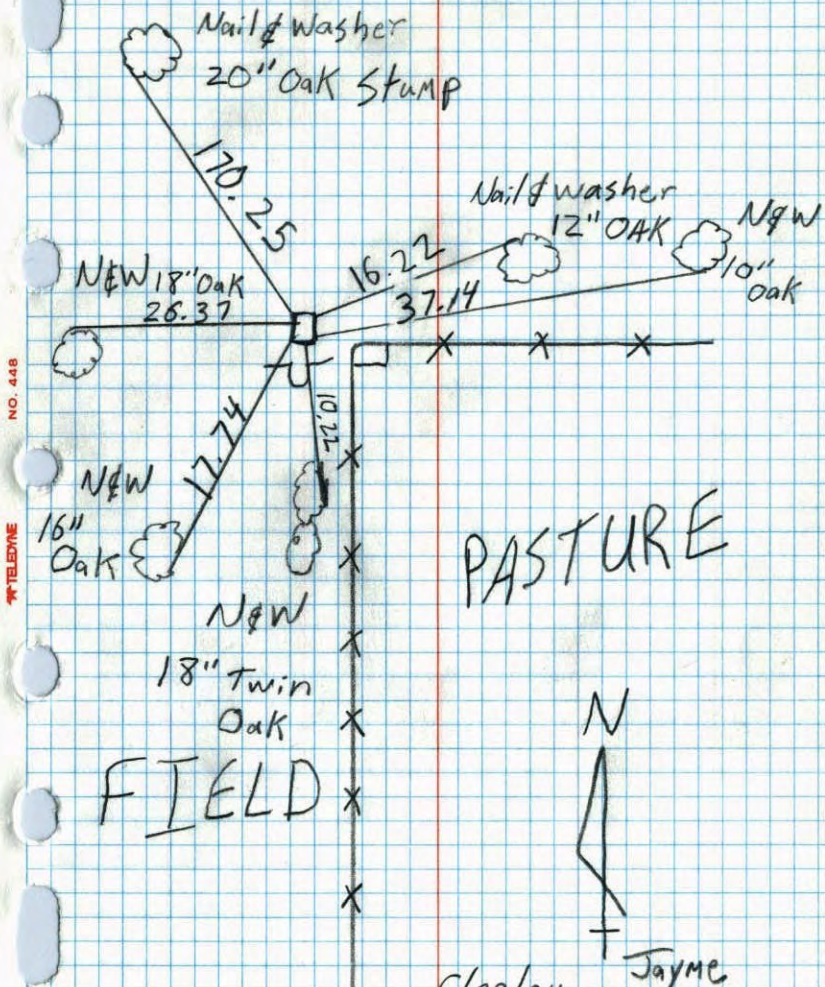 Nail & Washer
20" Oak Stump
170.25
Nail & washer
12" OAK
N&W
10"
Oak
16.22
37.14
N&W 18" Oak
26.37
17.74
10.22
N&W
16"
Oak
N&W
18" Twin
Oak
PASTURE
FIELD
N
Jayme
NO. 448
TELEDYNE